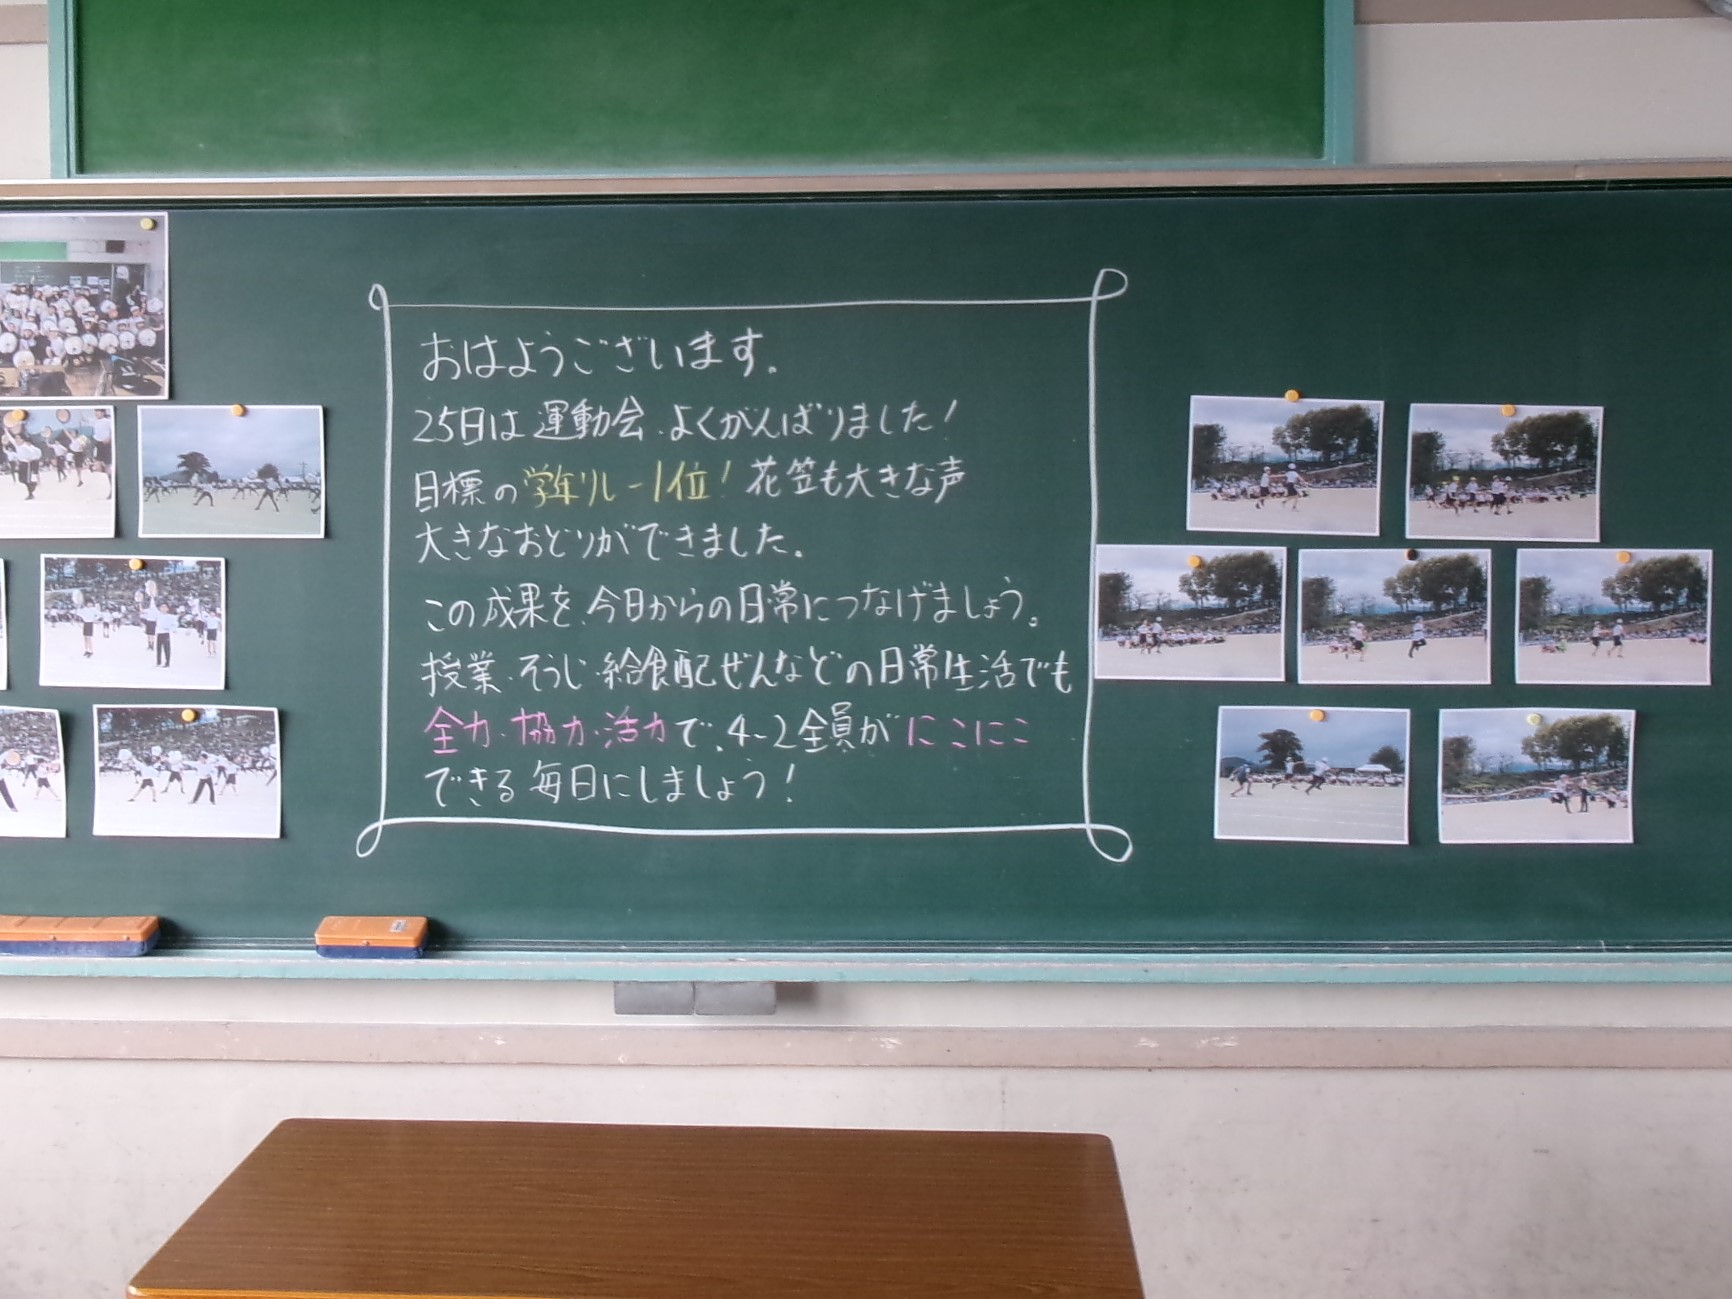 おはようございます。
25日は運動会、よくがんばりました!
目標の学年リレー1位!花笠も大きな声
大きなおどりができました。
この成果を、今日からの日常につなげましょう。
授業・そうじ・給食配ぜんなどの日常生活でも
全力・協力・活力で、4-2全員がにこにこ
できる毎日にしましょう!